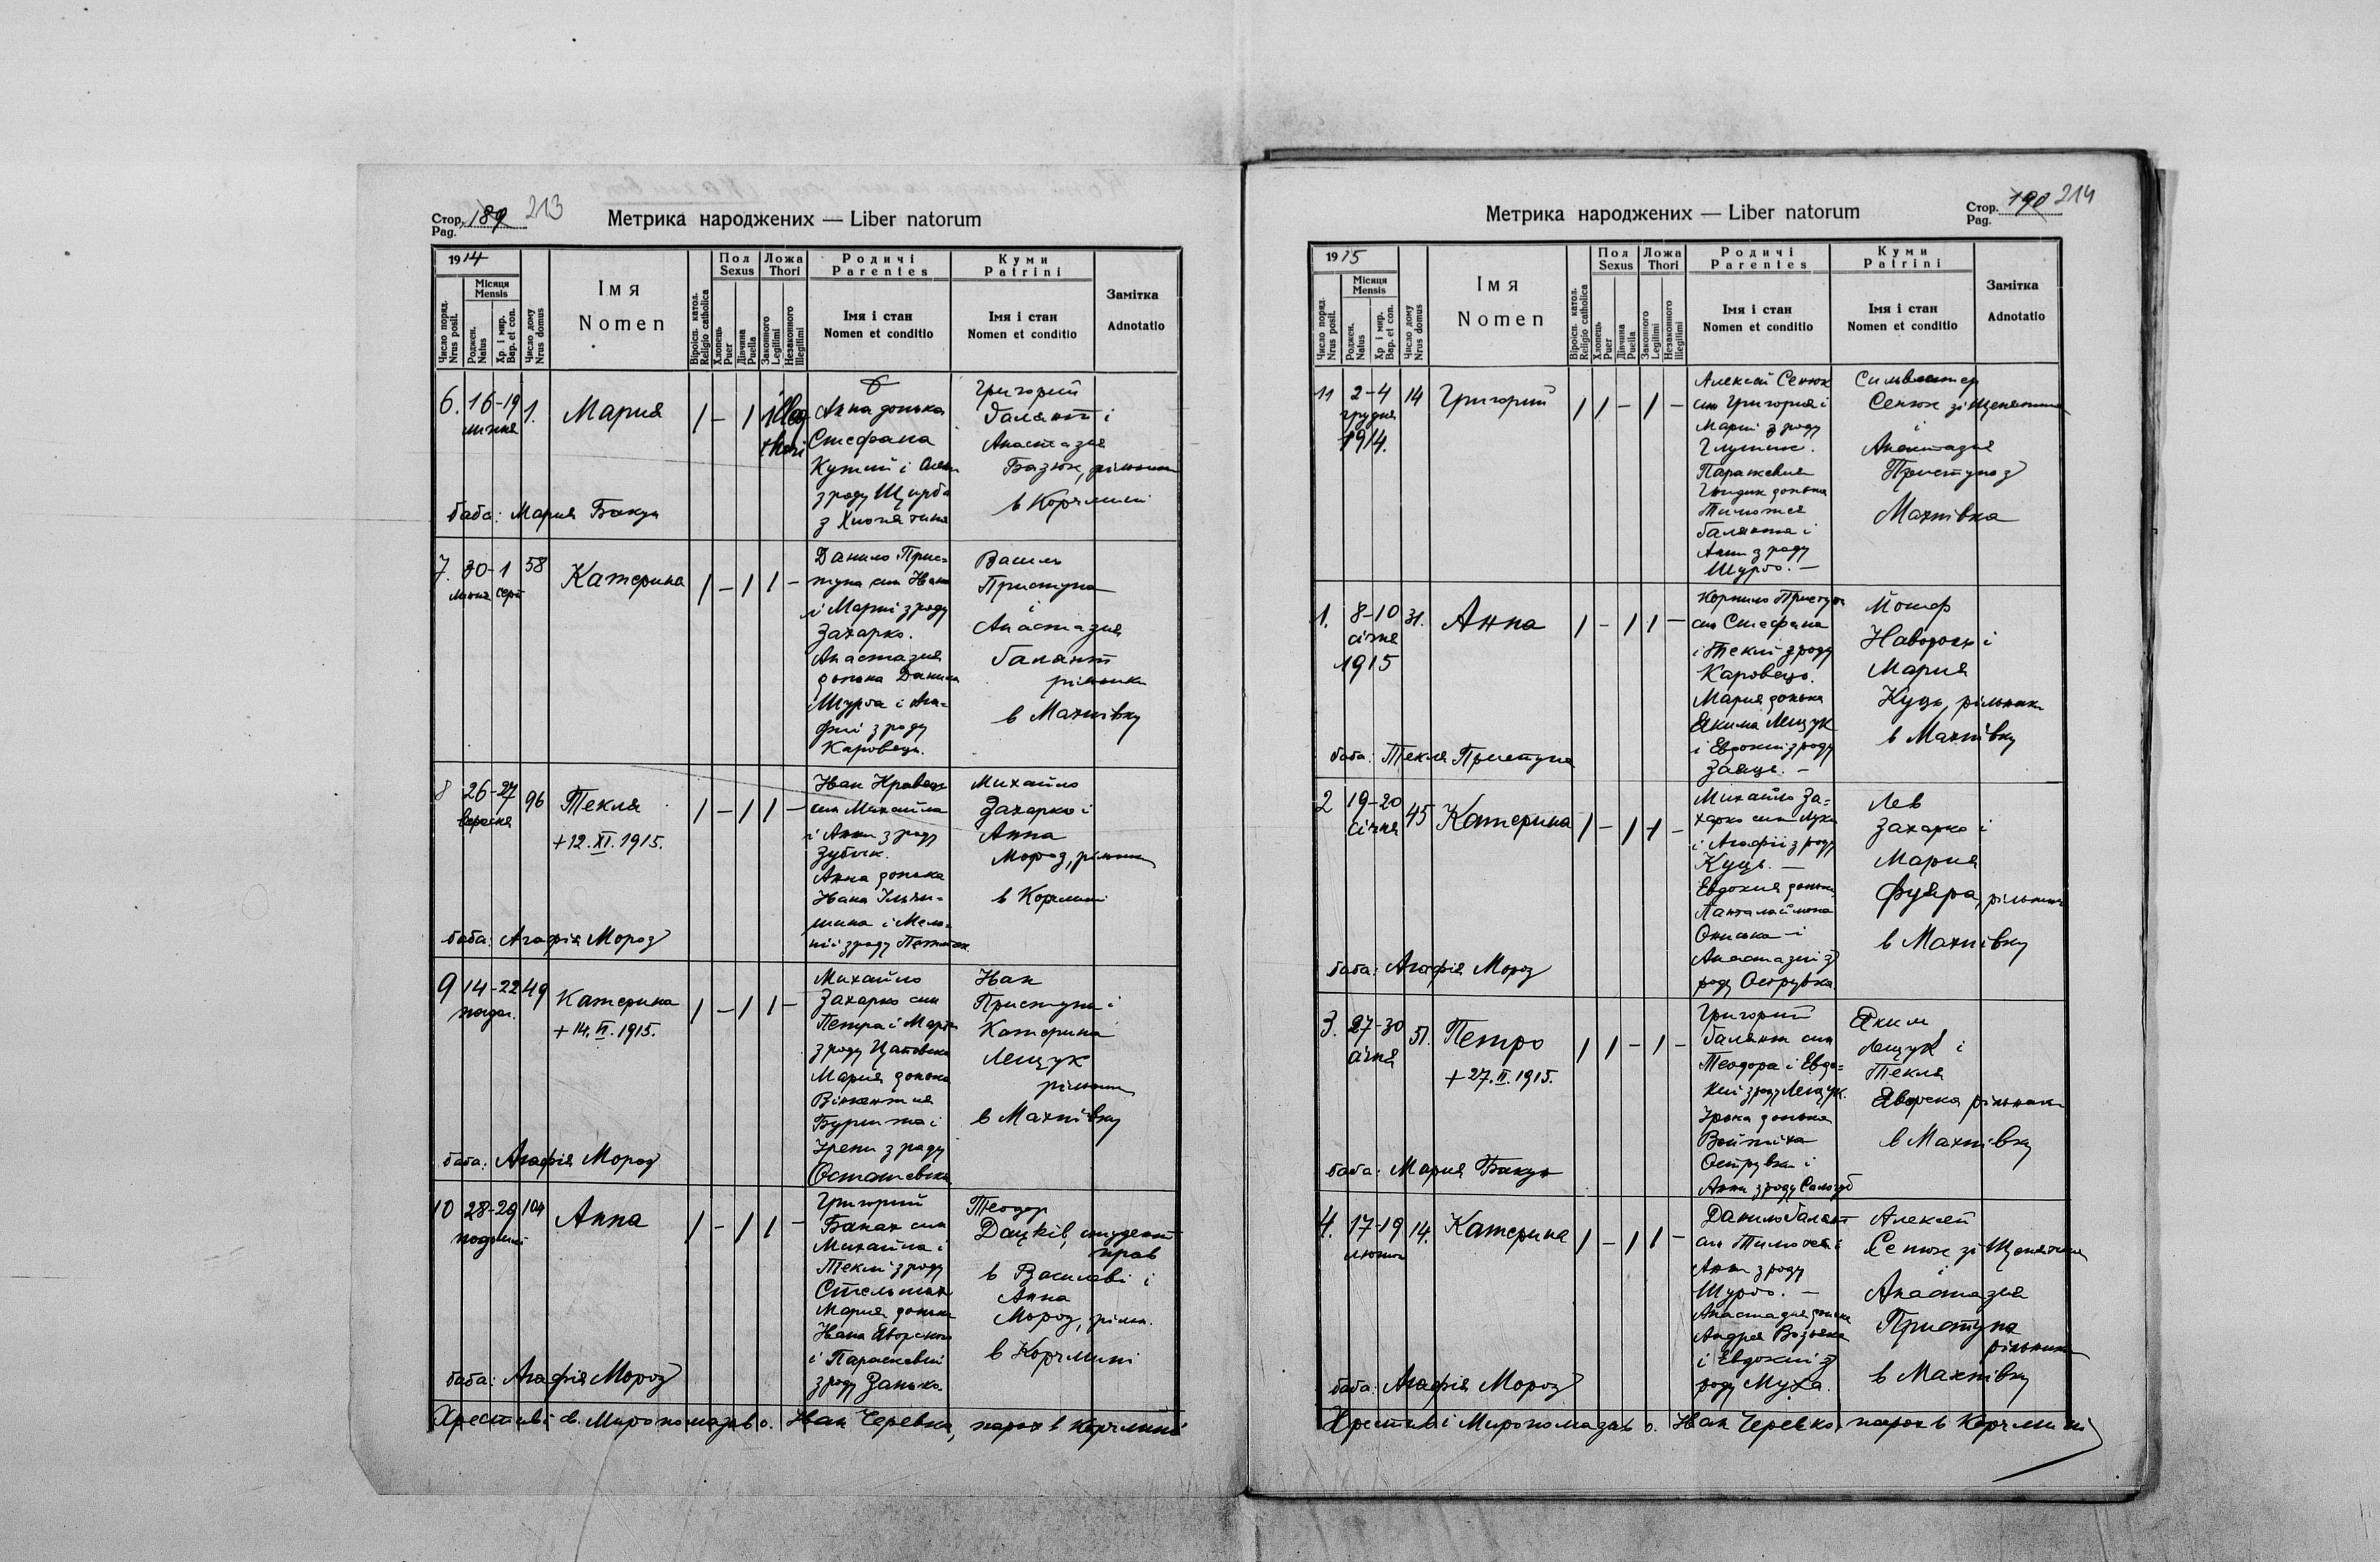 Стор. 189 213
Pag.
Метрика народжених — Liber natorum
1914
Число поряд.
Nrus posit.
Місяця
Mensis
Роджен.
Natus
Хр. і мир.
Bap. et con.
Число дому
Nrus domus
Імя
Nomen
Віроісп. катол.
Religio catholica
Пол
Sexus
Хлопець
Puer
Дївчина
Puella
Ложа
Thori
Законного
Legitimi
Незаконного
Illegitimi
Родичі
Parentes
Імя і стан
Nomen et conditio
Куми
Patrini
Імя і стан
Nomen et conditio
Замітка
Adnotatio
6. 16-19 1. Мария 1 - 1 illeg
липня
thori
Анна донька
Стефана
з роду Щирба
Григорий
Галянт і
Анастазия
Базюк, рільники
в Корчмині
баба: Мария Бакун
7. 30-1 58 Катерина 1 - 1 1 -
липня серп
Данило Прис-
тупа син Ивана
і Марії з роду
Захарко.
Анастазия
донька Данила
Шурба і Ага-
фії з роду
Каровець.
Василь
Приступа
і
Анастазия
Галянт
рільники
в Махнівку
8 26-27 96 Текля 1 - 1 1 -
вересня
+12.XI.1915.
Иван Кравець
син Михайла
і Анни з роду
Зубик.
Анна донька
Ивана Ільчи-
шина і Мела-
нії з роду
Михайло
Захарко і
Анна
Мороз, рільники
в Корчмині
баба: Агафія Мороз
9 14-22 49 Катерина 1 - 1 1 -
падол.
+14.VI.1915.
Михайло
Захарко син
Петра і Марії
з роду
Мария донька
Вінкентия
і
Ірени з роду
Осташевска
Иван
Приступа і
Катерина
Лещук
рільники
в Махнівку
баба: Агафія Мороз
10 28-29 104 Анна 1 - 1 1 -
падолиста
Григорий
Банах син
Михайла і
Теклі з роду
Стельмах
Мария донька
Ивана Яворского
і Параскевії
з роду Занько.
Теодор
Дацків, студент
прав
в Василеві і
Анна
Мороз, рільн.
в Корчмині
баба: Агафія Мороз
Хрестив і св. Миропомазав о. Иван Черевко, парох в Корчмині
Стор. 190 214
Pag.
Метрика народжених — Liber natorum
1915
Число поряд.
Nrus posit.
Місяця
Mensis
Роджен.
Natus
Хр. і мир.
Bap. et con.
Число дому
Nrus domus
Імя
Nomen
Віроісп. катол.
Religio catholica
Пол
Sexus
Хлопець
Puer
Дївчина
Puella
Ложа
Thori
Законного
Legitimi
Незаконного
Illegitimi
Родичі
Parentes
Імя і стан
Nomen et conditio
Куми
Patrini
Імя і стан
Nomen et conditio
Замітка
Adnotatio
11 2-4 14 Григорий 1 1 - 1 -
грудня
1914.
Алексій Сенюк
син Григория і
Марії з роду
Параскевия
донька
Тимотея
Галянта і
Анни з роду
Шурбо. —
Сильвестер
Сенюк зі Щепятина
і
Анастазия
Приступа з
Махнівка
1. 8-10 31. Анна 1 - 1 1 -
січня
1915
Корнило Приступа
син Стефана
і Теклі з роду
Каровець.
Мария донька
Якима Лещук
і Евдокії з роду
Заяць. —
Йосиф
і
Мария
Куць, рільники
в Махнівку
баба: Текля Приступа
2 19-20 45 Катерина 1 - 1 1 -
січня
Михайло За-
харко син Луки
і Агафії з роду
Куць. —
Евдокия донька
Панталаймона
Ониська і
Анастазії з
роду Острувка
Лев
Захарко і
Мария
Фуяра, рільники
в Махнівку
баба: Агафія Мороз
3. 27-30 51. Петро 1 1 - 1 -
січня
+27.II.1915.
Григорий
Галянт син
Теодора і Евдо-
кії з роду Лещук.
Ірина донька
Войтіха
Острувки і
Анни з роду
Яким
Лещук і
Текля
Яворска рільники
в Махнівку
баба: Мария Бакун
4. 17-19 14. Катерина 1 - 1 1 -
лютого
Данило Галянт
син Тимотея і
Анни з роду
Шурбо. —
Анастазия донька
Андрея Возьняка
і Евдокії з
роду Муха.
Алексій
Сенюк зі Щепятина
і
Анастазия
Приступа
рільники
в Махнівку
баба: Агафія Мороз
Хрестив і Миропомазав о. Иван Черевко, парох в Корчмині